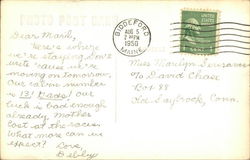 PHOTO POST CARD
BIDDEFORD
AUG 5
1950
MAINE
Dear Maril,
Here's where
we're staying. Don't
write 'cause we're
moving on tomorrow.
Our cabin number
is 13! Made! Our
luck is bad enough
already, Mother
lost at the races
What more can we
expect?
Love,
Debby
Miss Marilyn
To David Chase
Box 88
Old Saybrook, Conn.